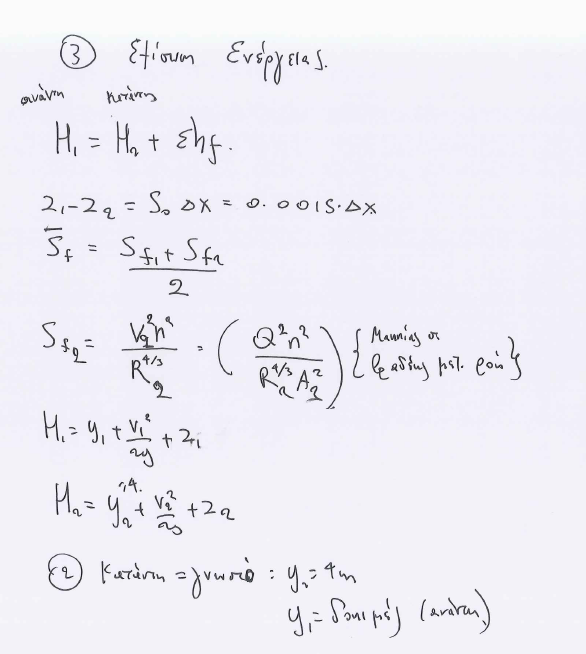 ③ Εξίσωση Ενέργειας.
ανάντη κατάντη
H₁ = H₂ + Σhf.
z₁-z₂ = S₀ Δx = 0.0015·Δx
S̄f = (Sf₁ + Sf₂) / 2
Sf₂ = V₂²n² / R₂^4/3 = (Q²n² / R₂^4/3 A₂²) { Manning σε βραδέως μετ. ροή }
H₁ = y₁ + V₁²/2g + z₁
H₂ = y₂ + V₂²/2g + z₂
② Κατάντη = γνωστό : y₂ = 4m
y₁ = δοκιμές (ανάντη)